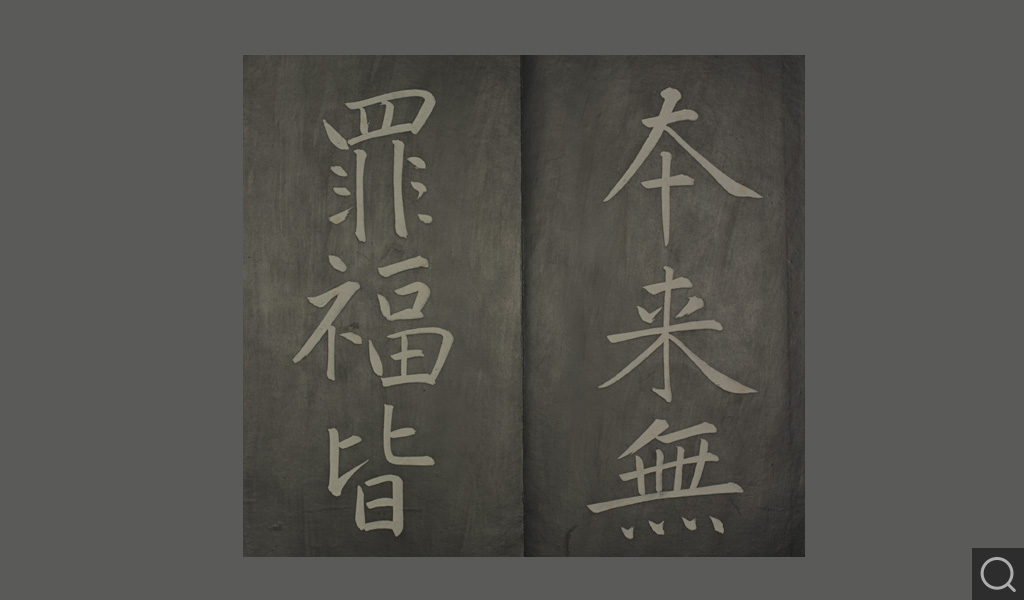 本来無
罪福皆